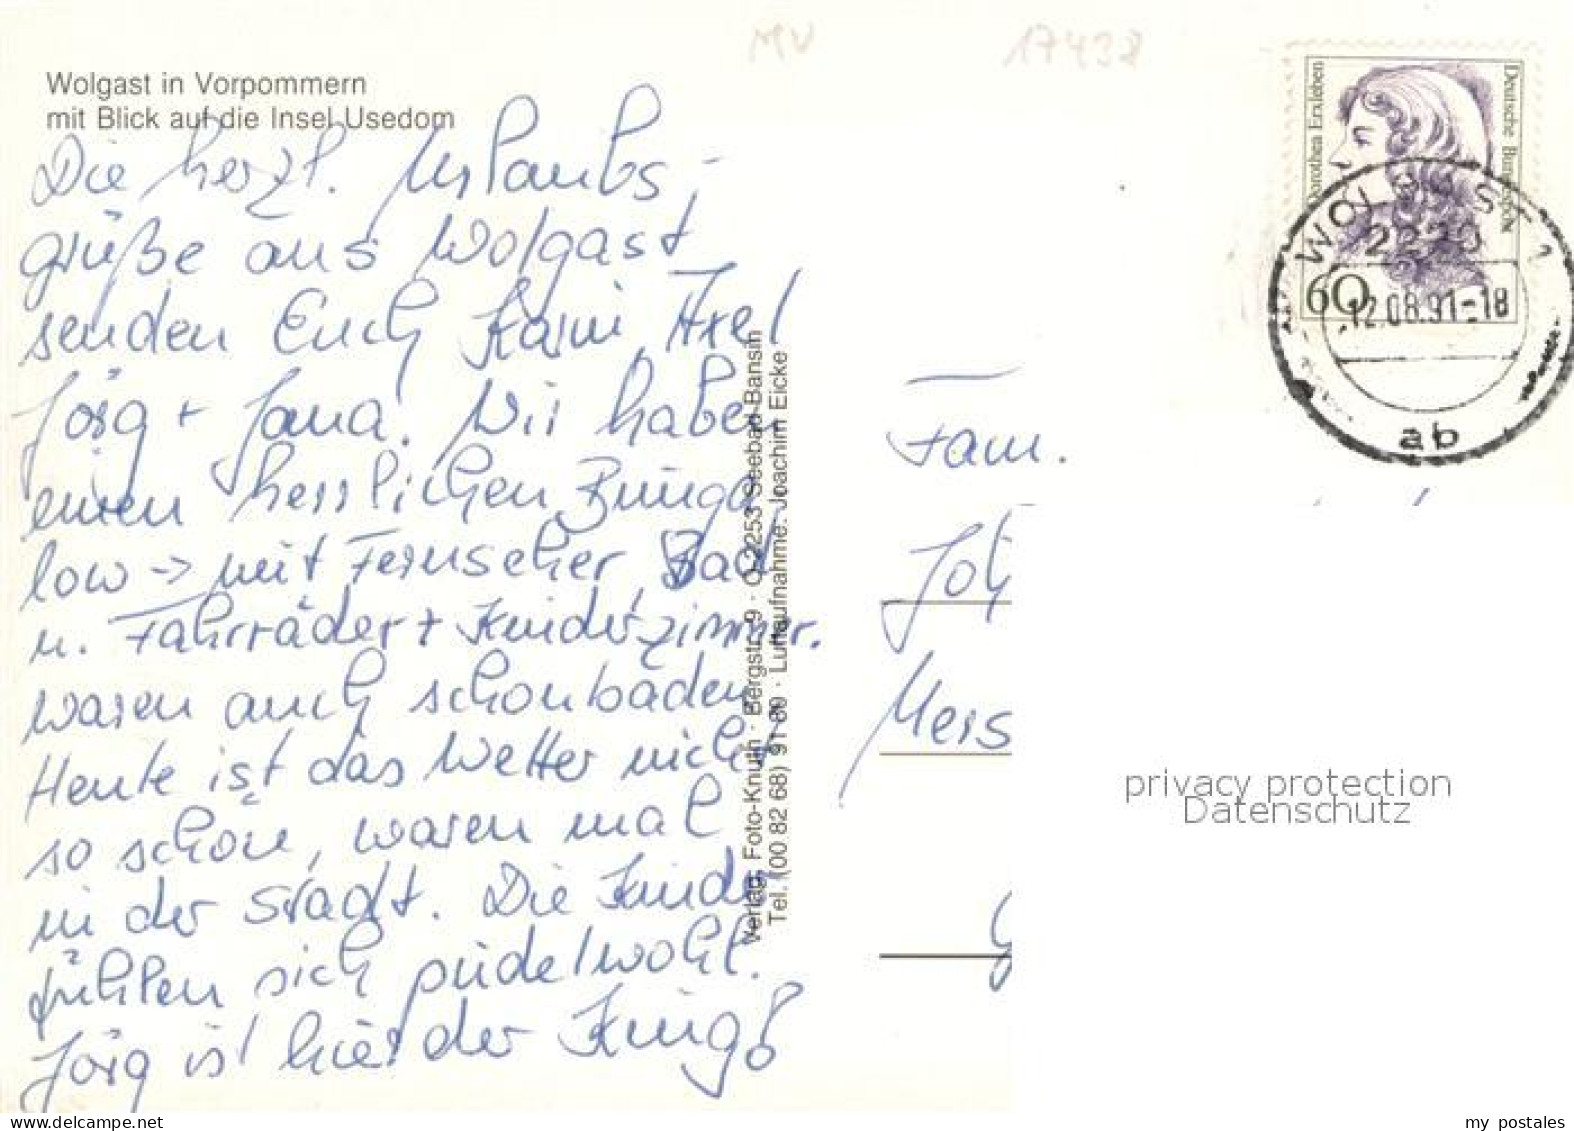 MV 17438
Wolgast in Vorpommern
mit Blick auf die Insel Usedom
Die herzl. Urlaubs-
grüße aus Wolgast
senden Euch Karin, Axel
Jörg + Jana. Wir haben
einen herrlichen Bunga
low -> mit Fernseher, Bad
u. Fahrräder + Kinderzimmer.
waren auch schon baden
Heute ist das Wetter nicht
so schön, waren mal
in der Stadt. Die Kinder
fühlen sich pudelwohl.
Jörg ist hier der King!
Verlag: Foto-Knuth · Bergstr. 9 · O-2253 Seebad Bansin
Tel. (00 82 68) 91 80 · Luftaufnahme: Joachim Eicke
Dorothea Erxleben
Deutsche Bundespost
60
WOLGAST 1
2220
12.08.91-18
ab
Fam.
Joh
Meis
G
privacy protection
Datenschutz
www.delcampe.net
my_postales